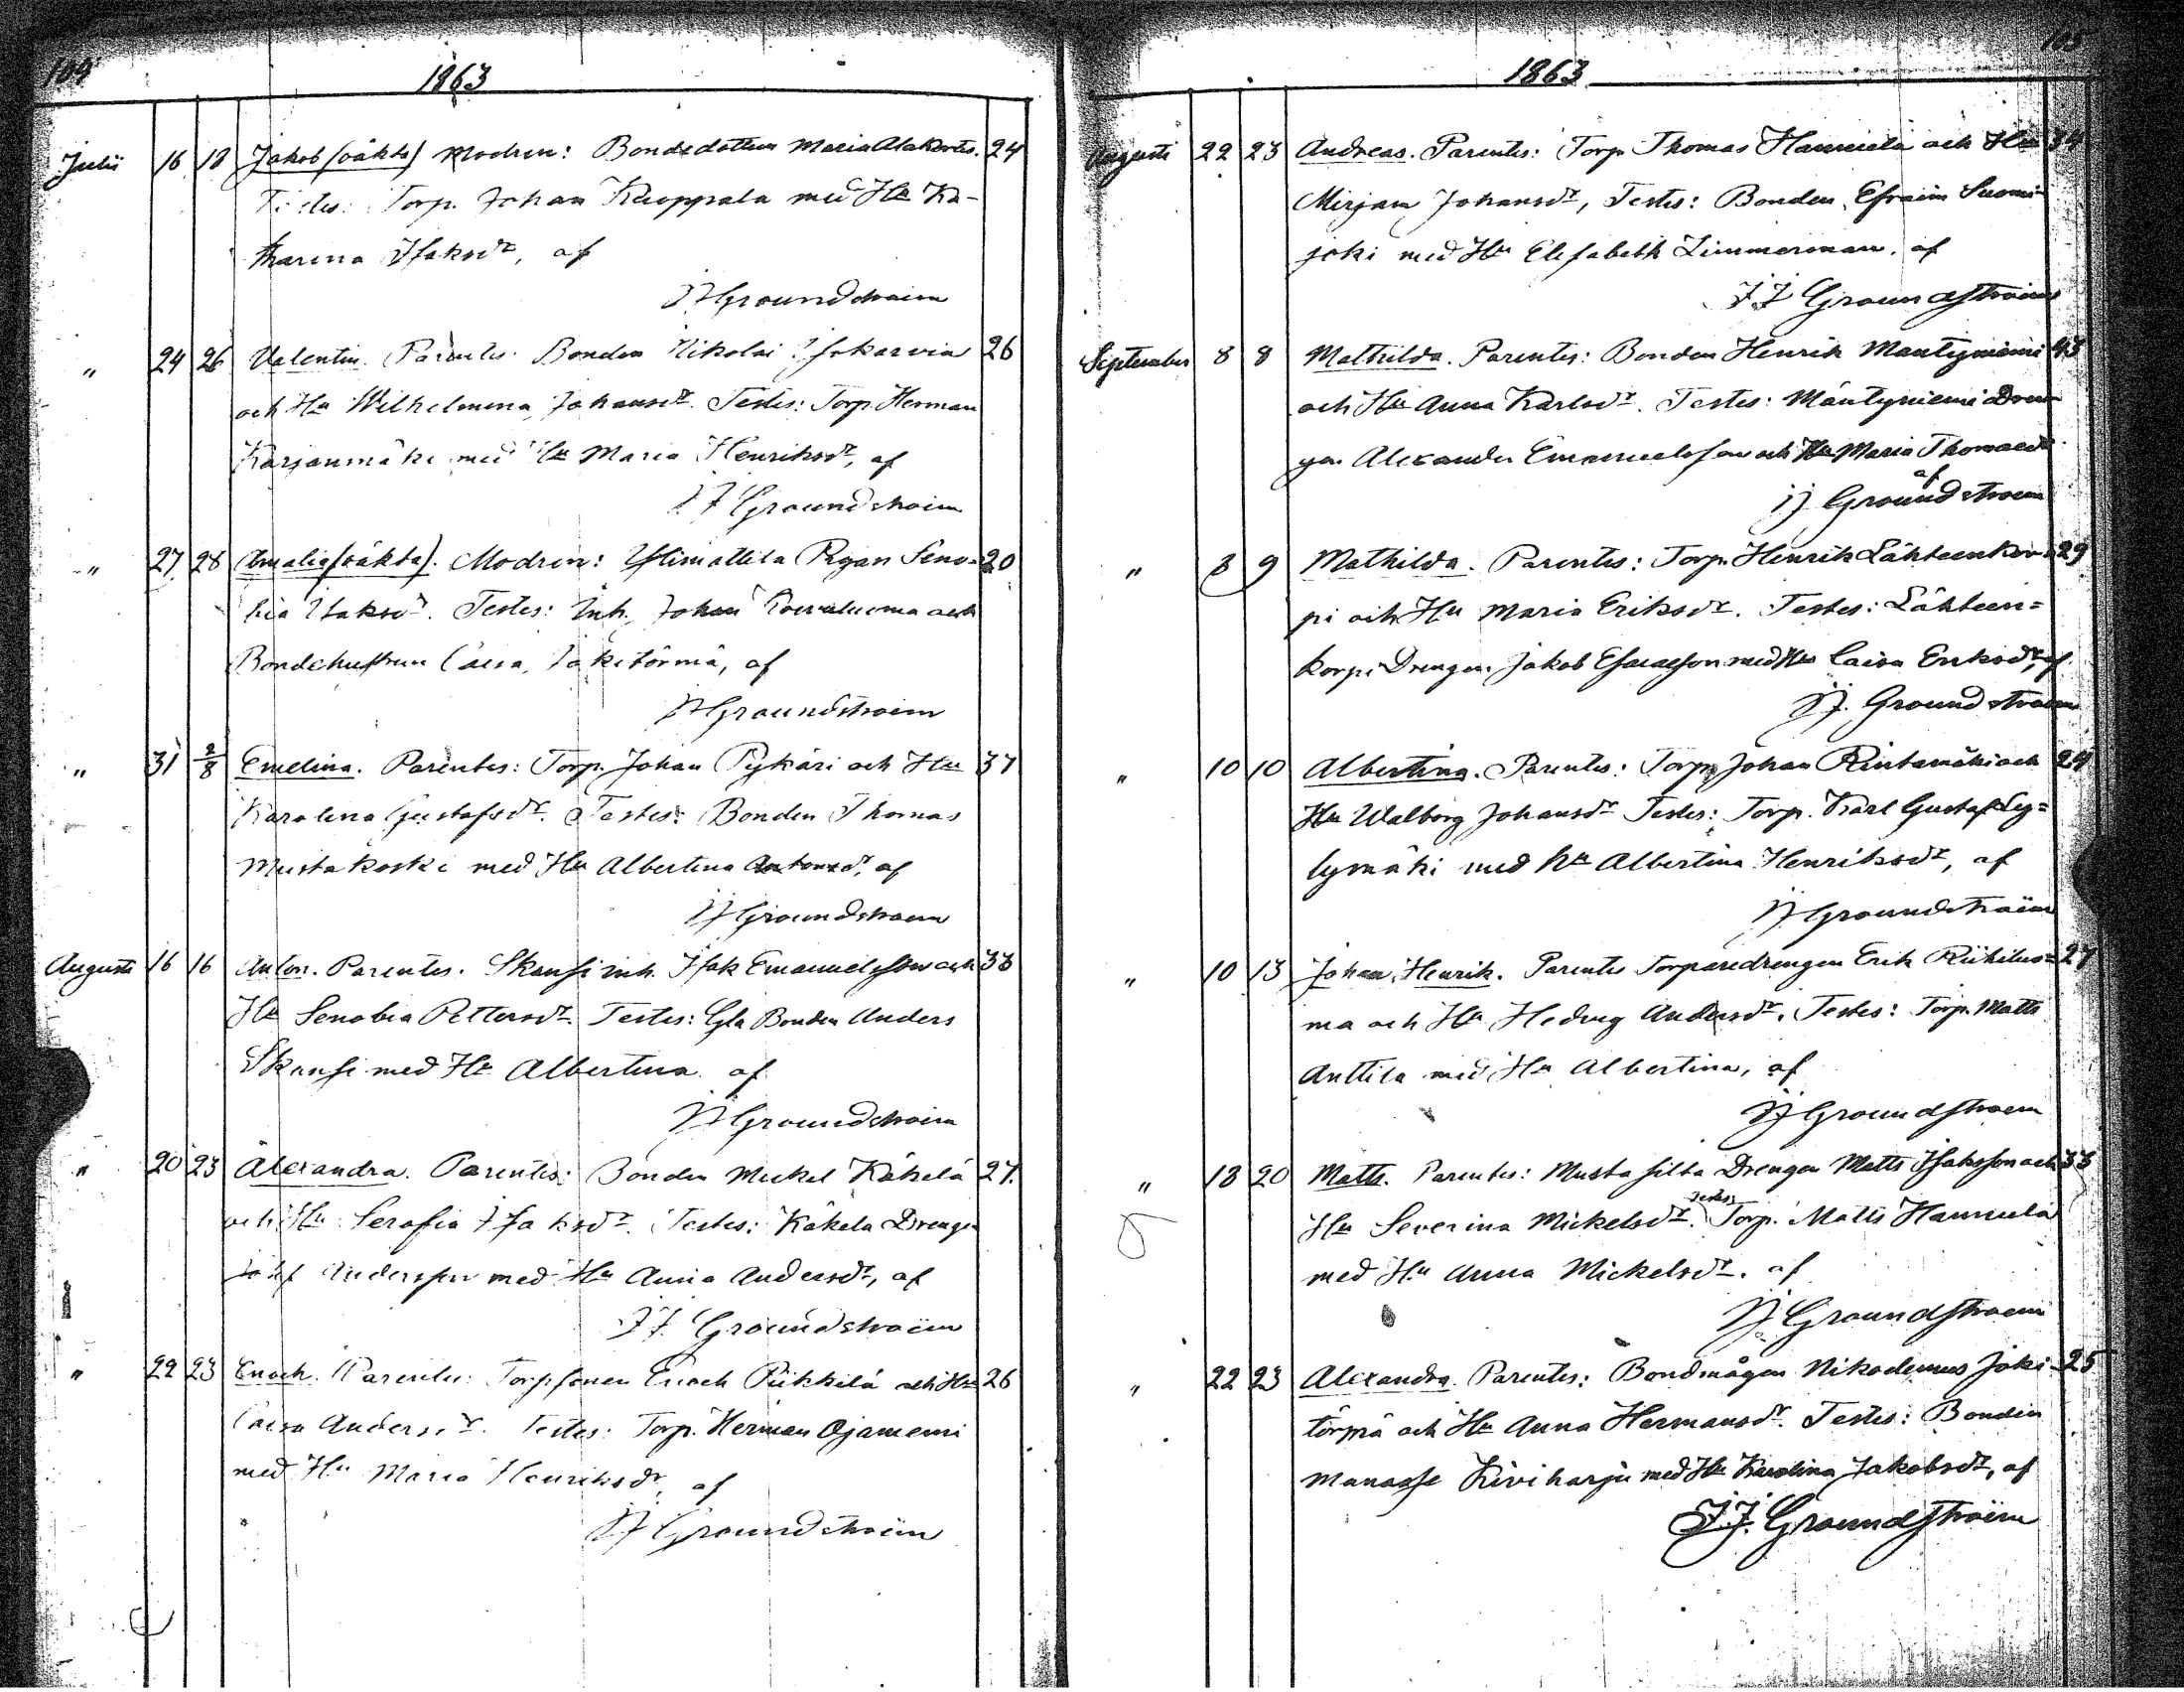 104
1863
Julii 16 18 Jakob (oäkta) Modren: Bondedottren Maria Alakortes. 24
Testes: Torp. Johan Kauppala med Hu Ka-
tharina Isaksdr, af
JJ Groundstroem
" 24 26 Valentin. Parentes: Bonden Nikolai
och Hu Wilhelmina Johansdr. Testes: Torp. Herman 26
Karjanmäki med Hu Maria Henriksdr, af
JJ Groundstroem
" 27 28 Amalia (oäkta). Modren: Ylimattila Pigan Seno- 20
bia Isaksdr. Testes: Inh. Johan och
Bondehustrun Caisa Jokitörmä, af
JJ Groundstroem
" 31 2/8 Emelina. Parentes: Torp. Johan Pykäri och Hu 37
Karolina Gustafsdr. Testes: Bonden Thomas
Mustakoski med Hu Albertina Antonsd, af
JJ Groundstroem
Augusti 16 16 Anton. Parentes. Skansi inh. Isak Emanuelsson och 33
Hu Senobia Pettersdr. Testes: Gla Bonden Anders
Skansi med Hu Albertina. af
JJ Groundstroem
" 20 23 Alexandra. Parentes: Bonden Mickel Käkelä 27.
och Hu Serafia Isaksdr. Testes: Käkelä Drengen
Andersson med Hu Anna Andersdr, af
JJ. Groundstroem
" 22 23 Enoch. Parentes: Torp.sonen Enoch Piikkilä och Hu 26
Caisa Andersdr. Testes: Torp. Herman Ojaniemi
med Hu Maria Henriksdr, af
JJ Groundstroem
105
1863
Augusti 22 23 Andreas. Parentes: Torp. Thomas Hannula och Hu 34
Mirjam Johansdr, Testes: Bonden Efraim Suomi-
joki med Hu Elisabeth Zimmerman, af
JJ Groundstroem
September 8 8 Mathilda. Parentes: Bonden Henrik Mantyniemi 43
och Hu Anna Karlsdr. Testes: Mäntyniemi Dren-
gen Alexander Emanuelsson och Hu Maria Thomasdr
af
JJ Groundstroem
" 8 9 Mathilda. Parentes: Torp. Henrik Lähteenkor- 29
pi och Hu Maria Eriksdr. Testes: Lähteen=
korpi Drengen Jakob Esaiasson med Hu Caisa Eriksdr, af
JJ. Groundstroem
" 10 10 Albertina. Parentes: Torp. Johan Rintamäki och 24
Hu Walborg Johansdr Testes: Torp. Karl Gustaf Sy=
lymäki med hu Albertina Henriksdr, af
JJ Groundstroem
" 10 13 Johan Henrik. Parentes Torparedrengen Erik Riihiluo= 27
ma och Hu Hedvig Andersdr. Testes: Torp. Matts
Anttila med Hu Albertina, af
JJ Groundstroem
" 18 20 Matts. Parentes: Mustasilta Drengen Matts Isaksson och 33
Hu Severina Mickelsdr. Testes Torp. Matts Hannula
med Hu Anna Mickelsdr. af
JJ Groundstroem
" 22 23 Alexandra. Parentes: Bondmågen Nikodemus Joki- 25
törmä och Hu Anna Hermansdr. Testes: Bonden
Manasse Kiviharju med Hu Karolina Jakobsdr, af
JJ. Groundstroem